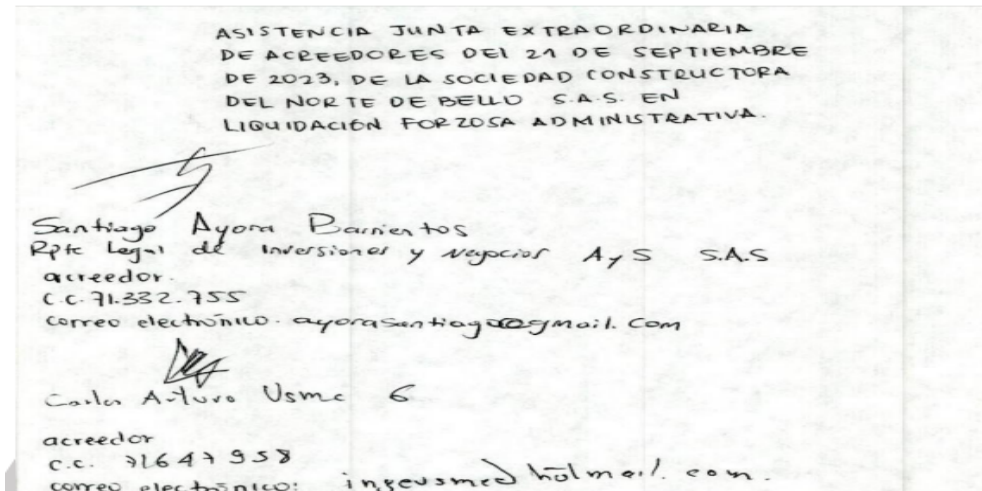 ASISTENCIA JUNTA EXTRAORDINARIA
DE ACREEDORES DEL 21 DE SEPTIEMBRE
DE 2023, DE LA SOCIEDAD CONSTRUCTORA
DEL NORTE DE BELLO S.A.S. EN
LIQUIDACIÓN FORZOSA ADMINISTRATIVA.
Santiago Ayora Barrientos
Rpte Legal de Inversiones y Negocios AyS S.A.S
acreedor.
C.C. 71.332.755
correo electrónico. ayorasantiago@gmail.com
Carlos Arturo Usme G
acreedor
c.c. 71647958
correo electrónico: ingeusme@hotmail.com.